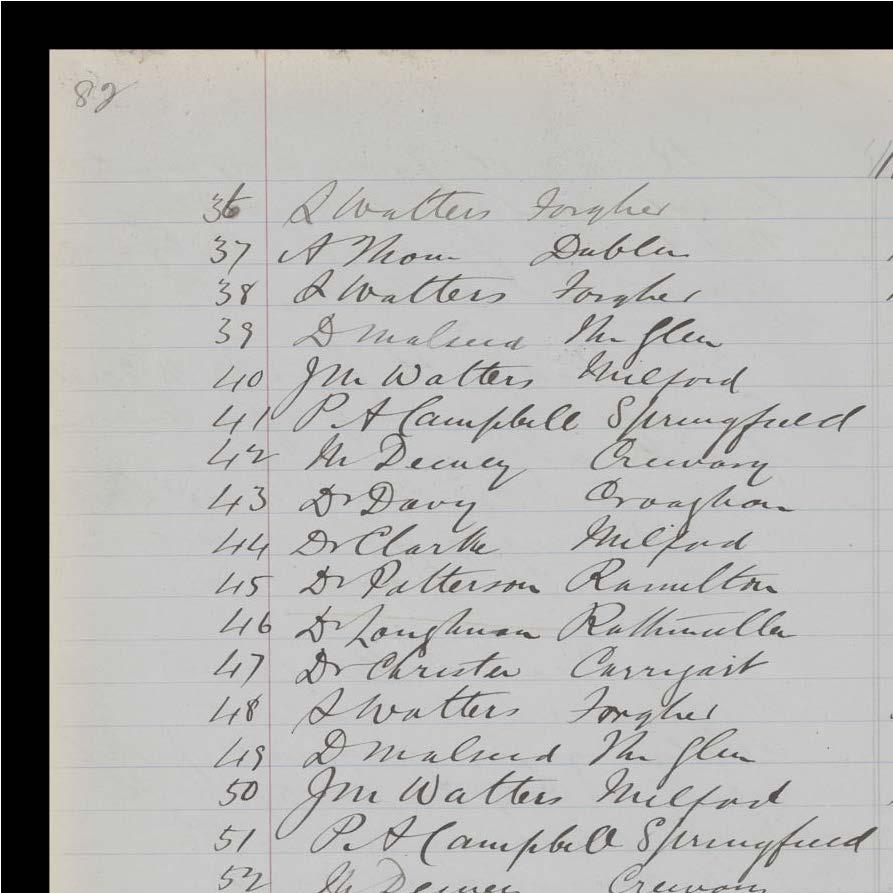 82
36 S Watters Forgher
37 A Thom Dublin
38 S Watters Forgher
39 D Malseed The Glen
40 J M Watters Milford
41 P A Campbell Springfield
42 M Deeney Creevary
43 Dr Davy Croaghan
44 Dr Clarke Milford
45 Dr Patterson Ramelton
46 Dr Loughman Rathmullen
47 Dr Christer Carrigart
48 S Watters Forgher
49 D Malseed The Glen
50 J M Watters Milford
51 P A Campbell Springfield
52 M Deeney Creevary